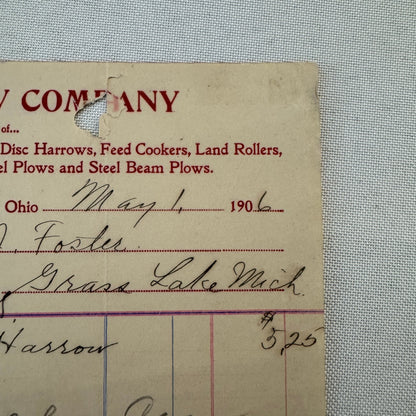 COMPANY
of...
Disc Harrows, Feed Cookers, Land Rollers,
Plows and Steel Beam Plows.
Ohio May 1, 1906
Foster
Grass Lake Mich.
Harrow $5,25